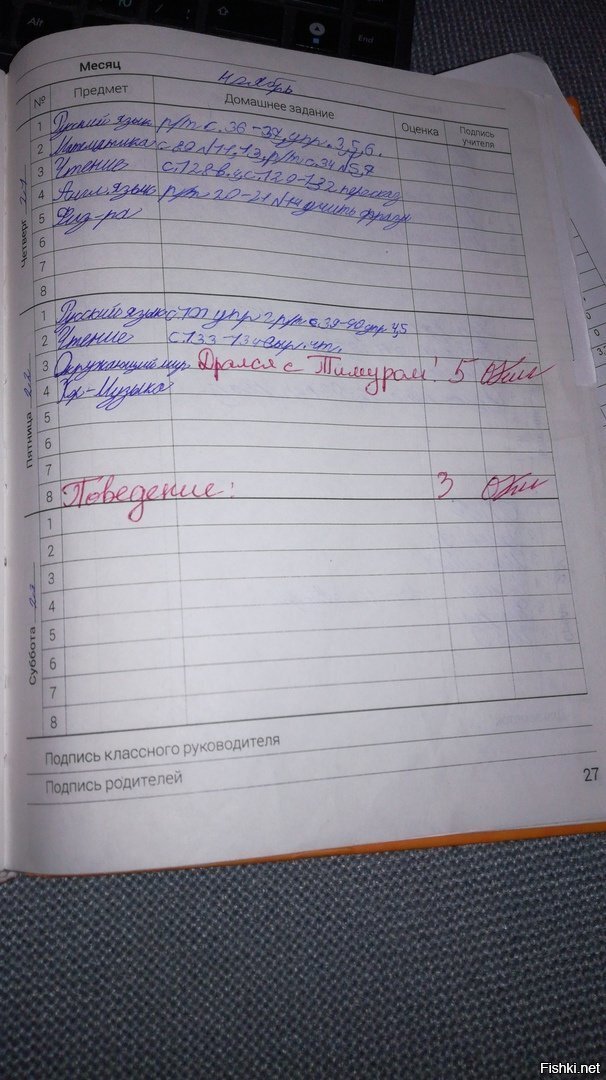 Alt
End
Месяц ноябрь
№ Предмет Домашнее задание Оценка Подпись учителя
Четверг 21
1 Русский язык р/т с. 36-37, упр. 3,5,6.
2 Математика с. 80 №11,13, р/т с. 34 №5,7
3 Чтение с. 128 в.у. с. 130-132 пересказ
4 Англ. язык р/т 20-21 учить фразы
5 Физ-ра
6
7
8
Пятница 22
1 Русский язык с. 101 упр. 2 р/т с. 39-40 упр 4,5
2 Чтение с. 133-134 выр. чт.
3 Окружающий мир Дрался с Тимуром! 5
4 Хор-Музыка
5
6
7
8 Поведение: 3
Суббота 23
1
2
3
4
5
6
7
8
Подпись классного руководителя
Подпись родителей
27
Fishki.net